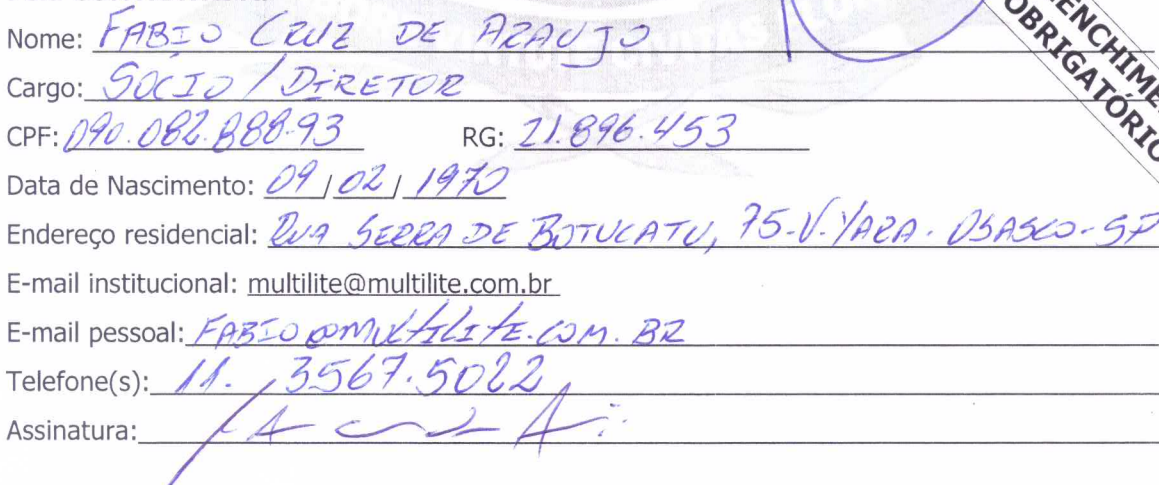 Nome: FABIO CRUZ DE ARAUJO
Cargo: SOCIO / DIRETOR
CPF: 090.082.888-93 RG: 21.896.453
Data de Nascimento: 09 / 02 / 1970
Endereço residencial: RUA SERRA DE BOTUCATU, 75-V. YARA - OSASCO-SP
E-mail institucional: multilite@multilite.com.br
E-mail pessoal: FABIO@MULTILITE.COM.BR
Telefone(s): 11. 3567.5022
Assinatura: